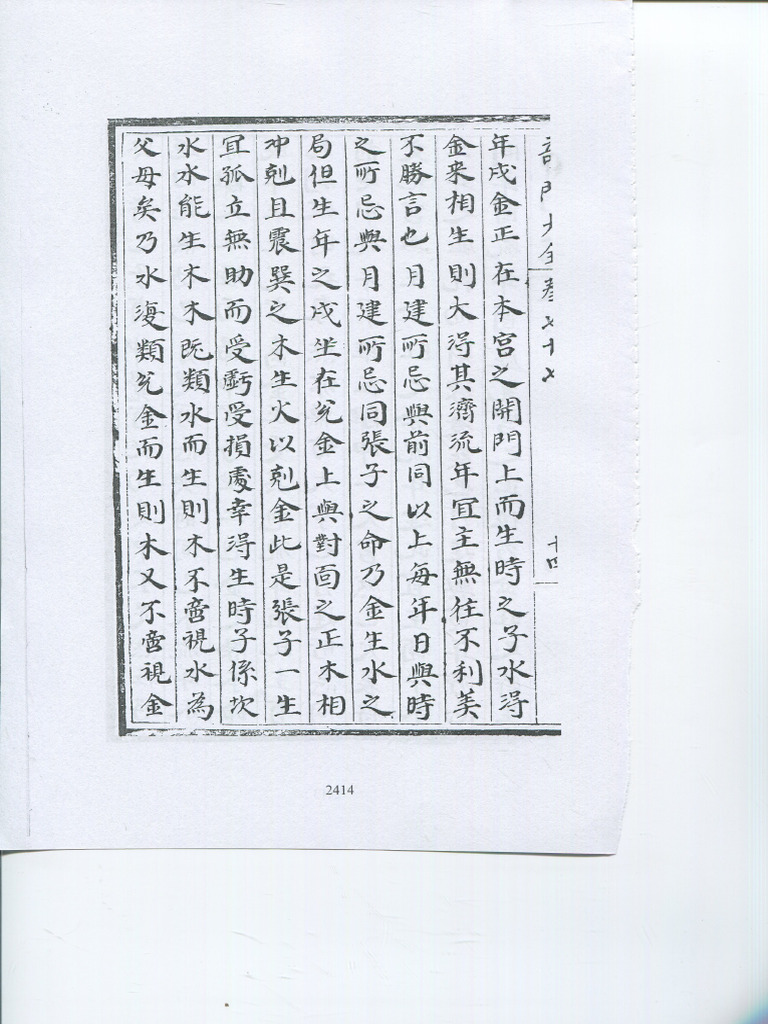 大全卷七十七 十四
年戌金正在本宮之開門上而生時之子水得
金来相生則大得其濟流年宜主無往不利美
不勝言也月建所忌與前同以上每年日與時
之所忌與月建所忌同張子之命乃金生水之
局但生年之戌坐在兌金上與對面之正木相
冲剋且震巽之木生火以剋金此是張子一生
宜孤立無助而受虧受損處幸得生時子係坎
水水能生木木既類水而生則木不啻視水為
父母矣乃水復類兌金而生則木又不啻視金
2414